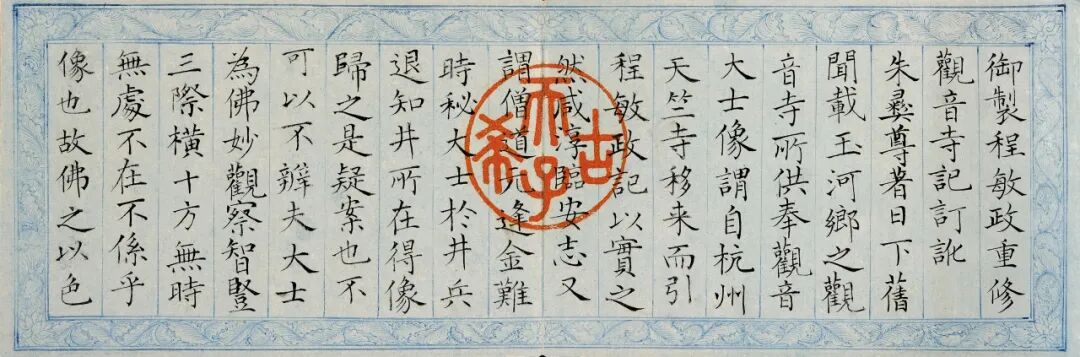 御製程敏政重修
觀音寺記訂訛
朱彞尊著日下舊
聞載玉河鄉之觀
音寺所供奉觀音
大士像謂自杭州
天竺寺移来而引
程敏政記以實之
然咸淳臨安志又
謂僧道元逢金難
時秘大士於井兵
退知井所在得像
歸之是疑案也不
可以不辨夫大士
為佛妙觀察智豎
三際橫十方無時
無處不在不係乎
像也故佛之以色
古希天子